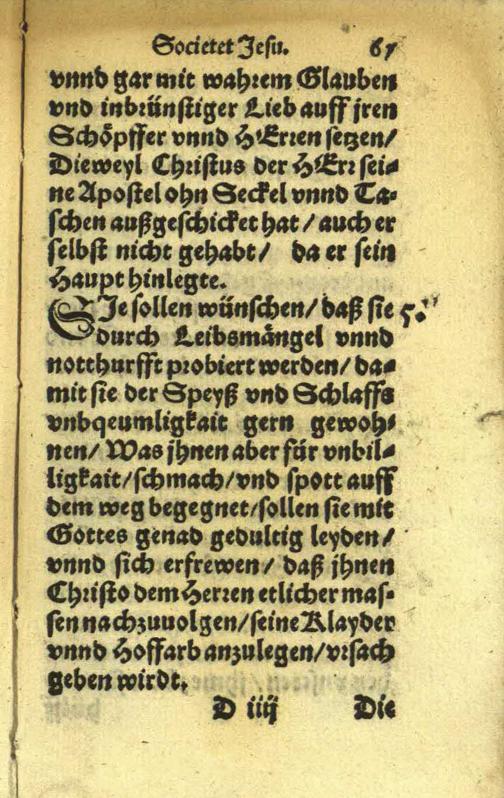 Societet Jesu. 67
vnnd gar mit wahrem Glauben
vnd inbrünstiger Lieb auff jren
Schöpffer vnnd HErren setzen/
Dieweyl Christus der HErr sei-
ne Apostel ohn Seckel vnnd Ta-
schen außgeschicket hat / auch er
selbst nicht gehabt / da er sein
Haupt hinlegte.
SJe sollen wünschen / daß sie 5.
durch Leibsmängel vnnd
notthurfft probiert werden / da-
mit sie der Speyß vnd Schlaffs
vnbqeumligkait gern gewoh-
nen / Was jhnen aber für vnbil-
ligkait / schmach / vnd spott auff
dem weg begegnet / sollen sie mit
Gottes genad gedultig leyden /
vnnd sich erfrewen / daß jhnen
Christo dem Herren etlicher mas-
sen nachzuuolgen / seine Klayder
vnnd Hoffarb anzulegen / vrsach
geben wirdt.
D iiij Die